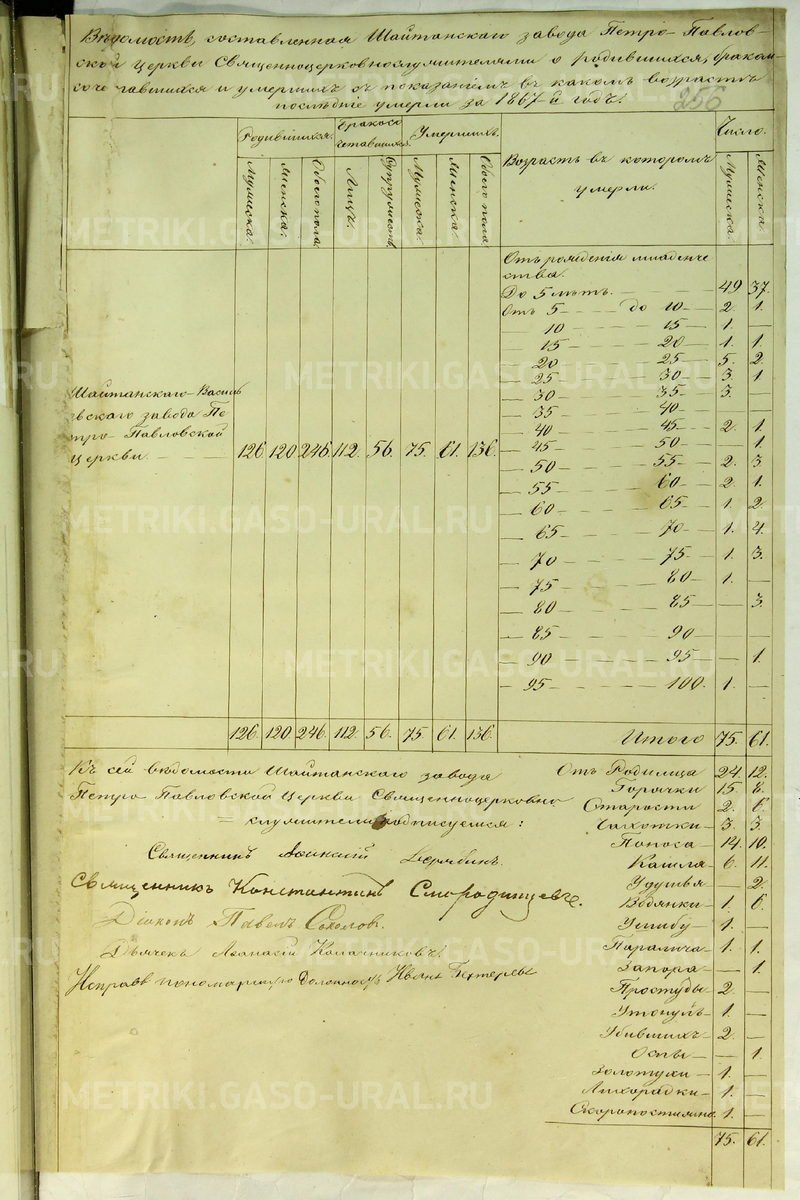 Вѣдомость, составленная Шайтанскаго завода Петро-Павлов-
ской Церкви Священноцерковнослужителями о родившихся, бракосо-
четавшихся и умершихъ съ показаніемъ въ какомъ возрастѣ
послѣдніе умерли за 1867й годъ.
256
Родившихся. Бракосочетавшихся. Умершихъ. Возрастъ въ которомъ умерли. Число.
Мужеска. Женска. Обоего пола. Лицъ. Супружествъ. Мужеска. Женска. Обоего пола. Мужеска. Женска.
Отъ рожденія младенче
ства.
До 5 лѣтъ. — 49 37.
Отъ 5 — до 10 — 2. 1.
— 10 — 15 — 1. —
— 15 — 20 — 1. 1.
— 20 — 25 — 5. 2.
— 25 — 30 — 3. 1.
— 30 — 35 — 3. —
— 35 — 40 —
— 40 — 45 — 2. 1.
— 45 — 50 — 1.
— 50 — 55 — 2. 3
— 55 — 60 — 2. 1.
— 60 — 65 — 1. 2.
— 65 — 70 — 1. 4.
— 70 — 75 — 1. 3.
— 75 — 80 — 1. —
— 80 — 85 — — 3.
— 85 — 90 —
— 90 — 95 — — 1.
— 95 — 100. 1. —
Шайтанскаго-Василь
евскаго завода Пе
тро-Павловской
Церкви. — 126 120 246 112. 56. 75. 61. 136.
126. 120. 246. 112. 56. 75. 61. 136. Итого 75. 61.
Къ сей вѣдомости Шайтанскаго завода
Петро Павловской Церкви Священноцерковно
= служители подписуемся:
Священникъ
Священникъ Константинъ Смородинцевъ.
Діаконъ Павелъ Соколовъ.
Дьячекъ Аѳанасій Колачниковъ.
Исправ. пономарскую должность Иванъ
Отъ Родимца 24. 12.
Горячки 15. 8.
Старости 2. 6.
Чахотки — 3. 3.
Поноса — 14. 10.
Кашля — 6. 11.
Удушья — 2.
Водянки — 1. 6.
Ушибу — 1. —
Паралича — 1. 1.
Запора — — 1.
Простуды 2 —
Утонулъ — 1. —
Убившихъ — 2. —
Оспы — — 1.
Золотухи — 1. —
Лихорадки — 1. —
Скоропостижно. 1. —
75. 61.
METRIKI.GASO-URAL.RU